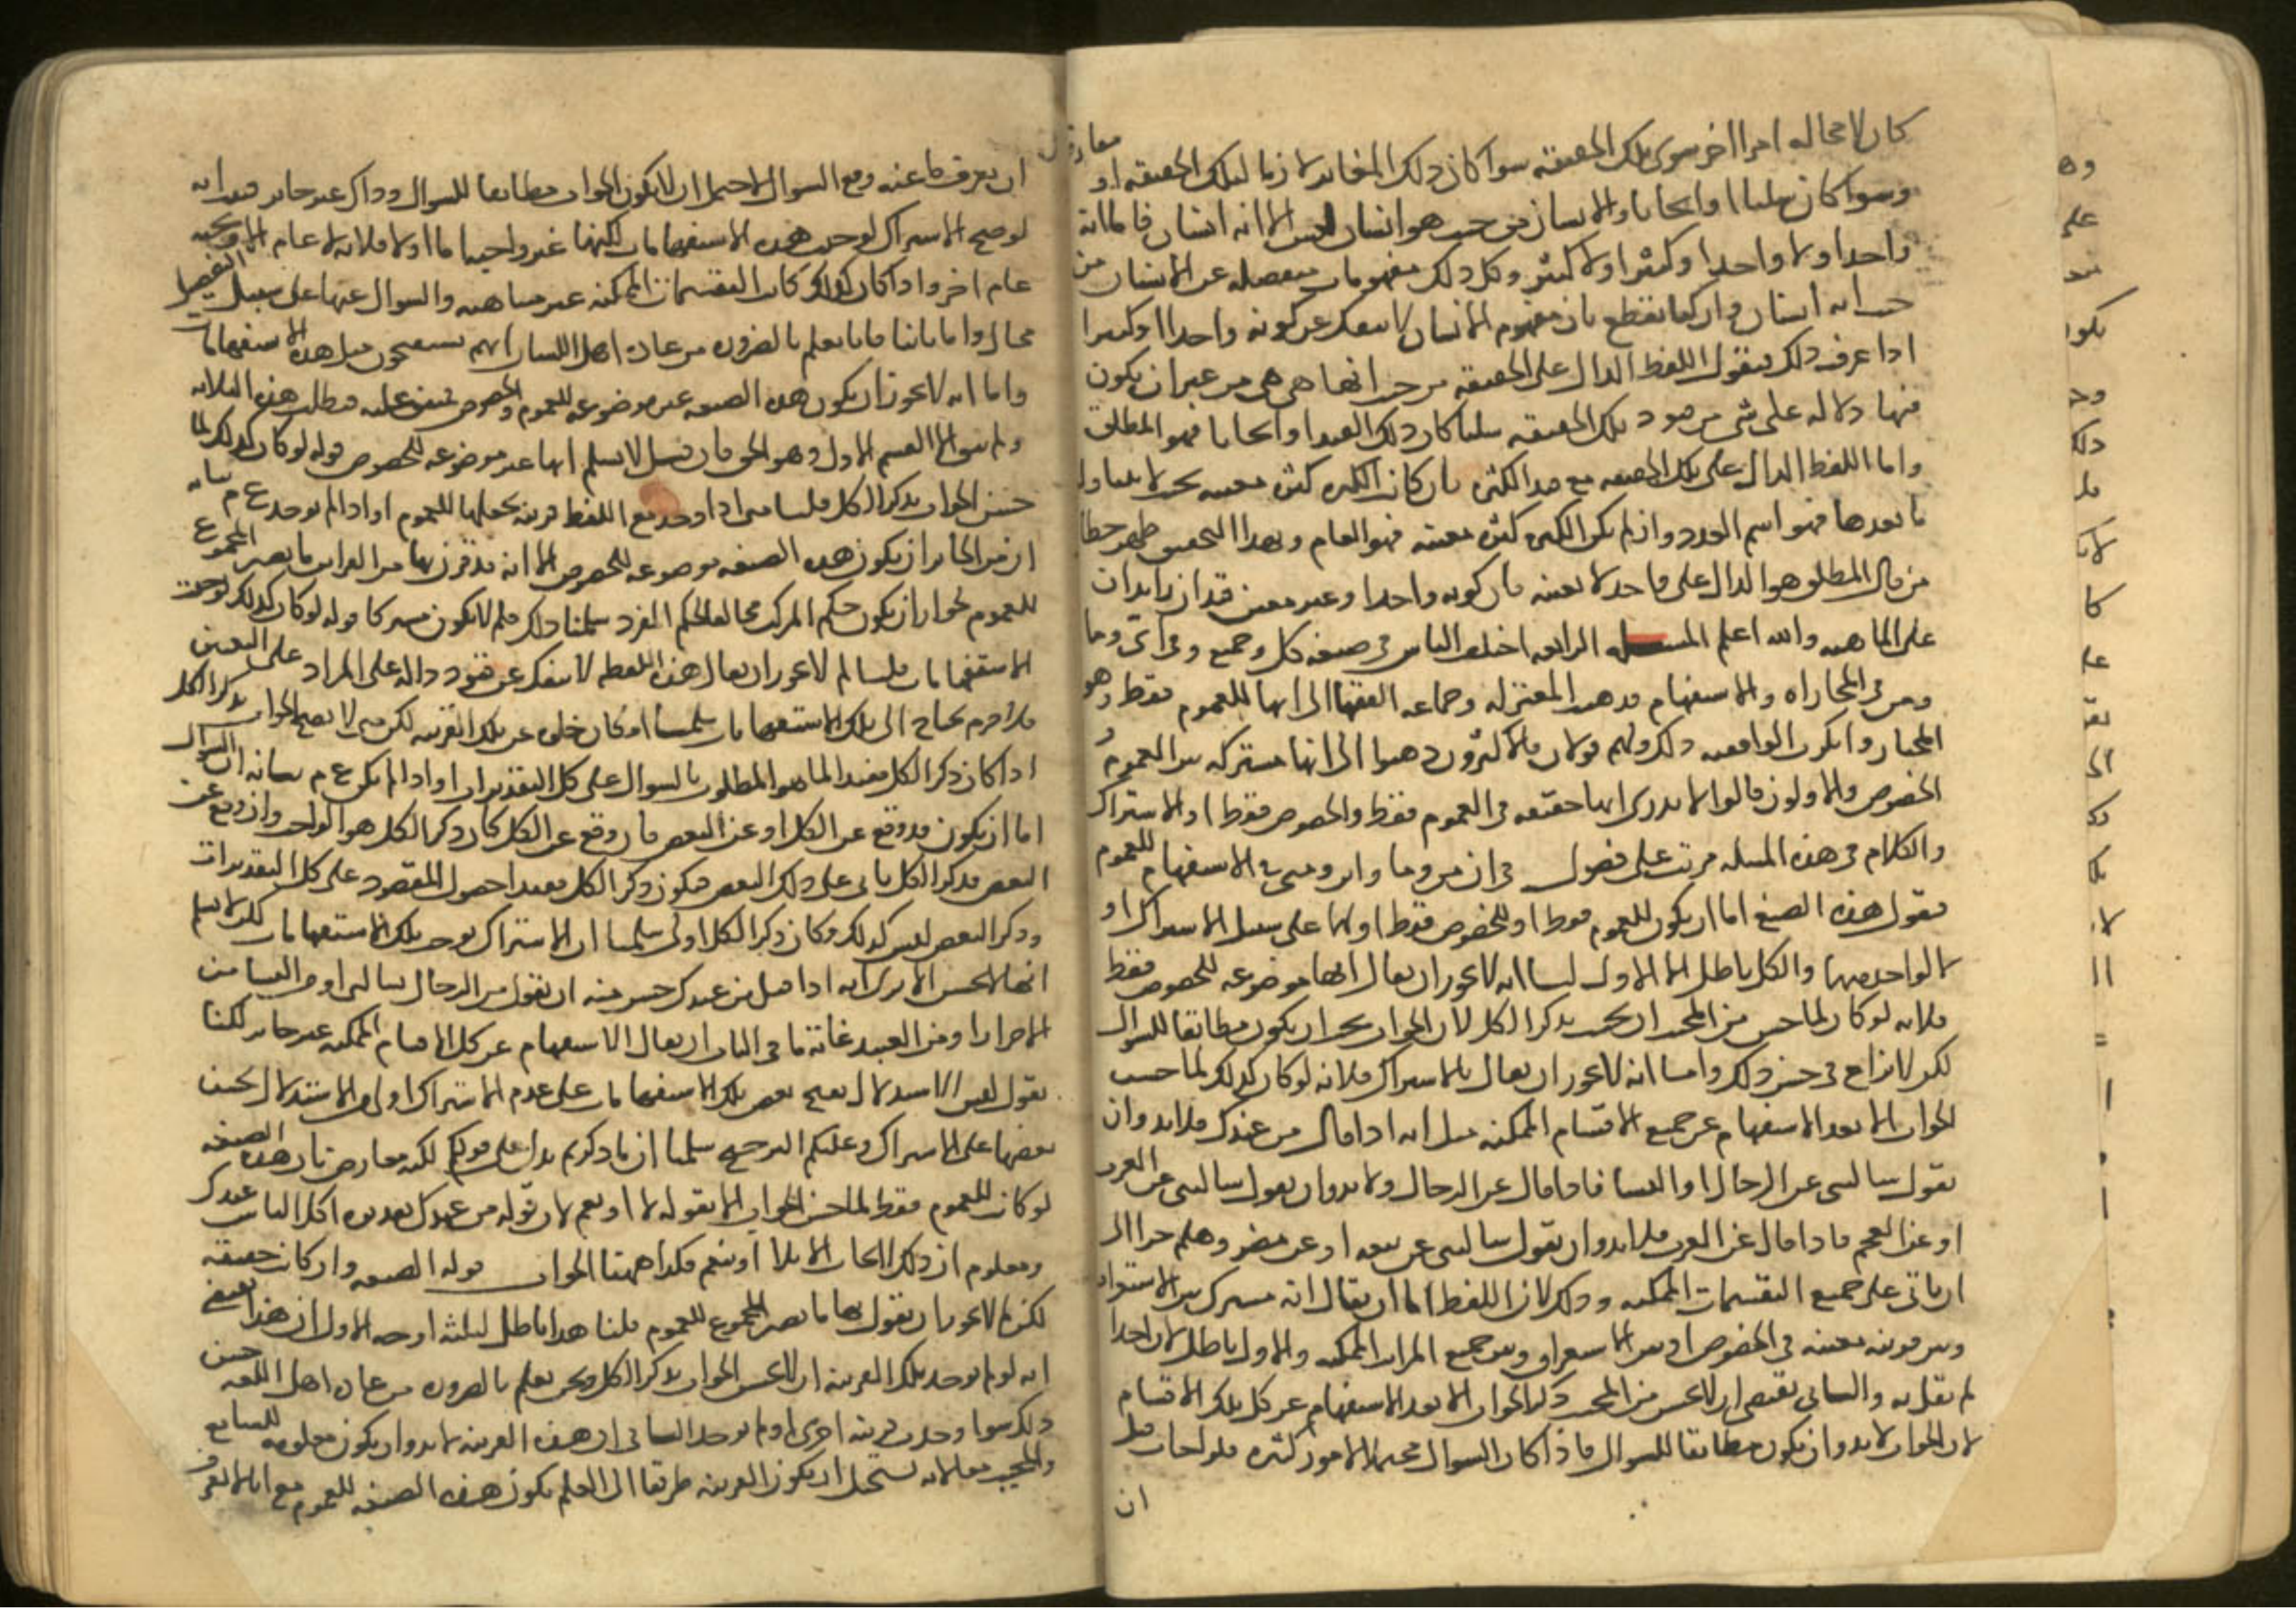 كان لا محالة امرا اخر سوى تلك الحقيقة سوا كان ذلك المغاير لازما لتلك الحقيقة او مفارقا
وسوا كان سلبا او ايجابا والانسان من حيث هو انسان ليس الا انه انسان فاما انه
واحد او لا واحد او كثير او لا كثير وكل ذلك مفهومات منفصله عن الانسان من
حيث انه انسان وان كنا نقطع بان مفهوم الانسان لا ينفك عن كونه واحدا او كثيرا
اذا عرف ذلك فنقول اللفظ الدال على الحقيقة من حيث انها هي هي من غير ان يكون
فيها دلاله على شي من قيود تلك الحقيقه سلبا كان ذلك القيد او ايجابا فهو المطلق
واما اللفظ الدال على تلك الحقيقه مع قيد الكثره فان كانت الكثره كثره معينه بحيث لا يتناول
ما بعدها فهو اسم العدد وان لم تكن الكثره كثره معينه فهو العام وبهذا التحقيق ظهر خطا
من قال المطلق هو الدال على واحد لا بعينه فان كونه واحدا وغير معين قيدان زايدان
على الماهيه والله اعلم المسله الرابعه اختلف الناس في صيغه كل وجميع واي وما
ومن في المجازاه والاستفهام فذهب المعتزله وجماعه الفقها الى انها للعموم فقط وهو
المختار وانكرت الواقفيه ذلك ولهم قولان فالاكثرون ذهبوا الى انها مشتركه بين العموم و
الخصوص والاولون قالوا لا ندري انها حقيقه في العموم فقط او الخصوص فقط او الاشتراك
والكلام في هذه المسله مرتب على فصول في ان من وما واين ومتى في الاستفهام للعموم
فنقول هذه الصيغ اما ان يكون للعموم فقط او للخصوص فقط او لهما على سبيل الاشتراك او
لا لواحد منهما والكل باطل الا الاول اما انه لا يجوز ان يقال انها موضوعه للخصوص فقط
فلانه لو كان لما حسن من المجيب ان يجيب بذكر الكل لان الجواب يجب ان يكون مطابقا للسوال
لكن لا نزاع في حسن ذلك واما انه لا يجوز ان يقال بالاشتراك فلانه لو كان كذلك لما حسن
الجواب الا بعد الاستفهام عن جميع الاقسام الممكنه مثل انه اذا قال من عندك فلا بد وان
نقول سالتني عن الرجال او النسا فاذا قال عن الرجال فلا بد وان يقول سالتني عن العرب
او عن العجم فاذا قال عن العرب فلا بد وان نقول سالتني عن ربيعه او عن مضر وهلم جرا الى
ان ياتي على جميع التقسيمات الممكنه وذلك لان اللفظ اما ان يقال انه مشترك بين الاستغراق
وبين مرتبه معينه في الخصوص او بين الاستغراق وبين جميع المراتب الممكنه والاول باطل لان احدا
لم يقل به والثاني يقتضي ان لا يحسن من المجيب ذكر الجواب الا بعد الاستفهام عن كل تلك الاقسام
لان الجواب لا بد وان يكون مطابقا للسوال فاذا كان السوال محتملا لامور كثيره فلو اجاب قبل
ان
ان يعرف ما عنه وقع السوال لاحتمل ان لا يكون الجواب مطابقا للسوال وذلك غير جايز فثبت انه
لو صح الاشتراك لوجبت هذه الاستفهامات لكنها غير واجبه اما اولا فلانه لا عام الا وتحته
عام اخر واذا كان كذلك كانت التقسيمات الممكنه غير متناهيه والسوال عنها على سبيل التفصيل
محال واما ثانيا فانا نعلم بالضروره من عاده اهل اللسان انهم يستقبحون مثل هذه الاستفهامات
واما انه لا يجوز ان يكون هذه الصيغه غير موضوعه للعموم والخصوص فمتفق عليه فبطلت هذه الثلاثه
ولم يبق الا القسم الاول وهو الحق فان قيل لا نسلم انها غير موضوعه للخصوص قوله لو كان كذلك لما
حسن الجواب بذكر الكل قلنا متى اذا وجد مع اللفظ قرينه تجعلها للعموم او اذا لم توجد ع م بيانه
ان من الجايز ان يكون هذه الصيغه موضوعه للخصوص الا انه يقترن بها من القراين ما يصير المجموع
للعموم لجواز ان يكون حكم المركب مخالفا لحكم المفرد سلمنا ذلك فلم لا يكون مشتركا قوله لو كان كذلك لوجبت
الاستفهامات قلنا لم لا يجوز ان يقال هذه اللفظه لا ينفك عن قيود داله على المراد على التعيين
فلا جرم يحتاج الى تلك الاستفهامات سلمنا امكان خلوه عن تلك القرينه لكن متى لا يصح الجواب بذكر الكل
اذا كان ذكر الكل مفيدا لما هو المطلوب بالسوال على كل التقديرات او اذا لم يكن ع م بيانه ان السوال
اما ان يكون قد وقع عن الكل او عن البعض فان وقع عن الكل كان ذكر الكل هو الواجب وان وقع عن
البعض فذكر الكل ياتي على ذلك البعض فيكون ذكر الكل مفيدا حصول المقصود على كل التقديرات
وذكر البعض ليس كذلك وكان ذكر الكل اولى سلمنا ان الاشتراك يوجب تلك الاستفهامات لكن لا نسلم
انها لا تحسن الا ترى انه اذا قيل من عندك حسن منه ان نقول من الرجال تسالني او من النسا من
الاحرار او من العبيد غايه ما في الباب ان يقال الاستفهام عن كل الاقسام الممكنه غير جايز لكنا
نقول ليس الاستدلال بقبح بعض تلك الاستفهامات على عدم الاشتراك اولى من الاستدلال بحسن
بعضها على الاشتراك وعليكم الترجيح سلمنا ان ما ذكرتم يدل على قولكم لكنه معارض بان هذه الصيغه
لو كانت للعموم فقط لما حسن الجواب الا بقوله لا او نعم لان قوله من عندك تقديره اكل الناس عندك
ومعلوم ان ذلك لا يجاب الا بلا او بنعم فكذا ههنا الجواب قوله الصيغه وان كانت حقيقه
لكن لم لا يجوز ان يقول بها ما يصير المجموع للعموم قلنا هذا باطل لثلثه اوجه الاول ان هذا يقتضي
انه لو لم توجد تلك القرينه ان لا يحسن الجواب بذكر الكل ونحن نعلم بالضروره من عاده اهل اللغه حسن
ذلك سوا وجدت قرينه اخرى او لم توجد الثاني ان هذه القرينه لا بد وان يكون معلومه للسامع
والمجيب معا لانه يستحيل ان يكون القرينه طريقا الى العلم بكون هذه الصيغه للعموم مع انا لا نعرف